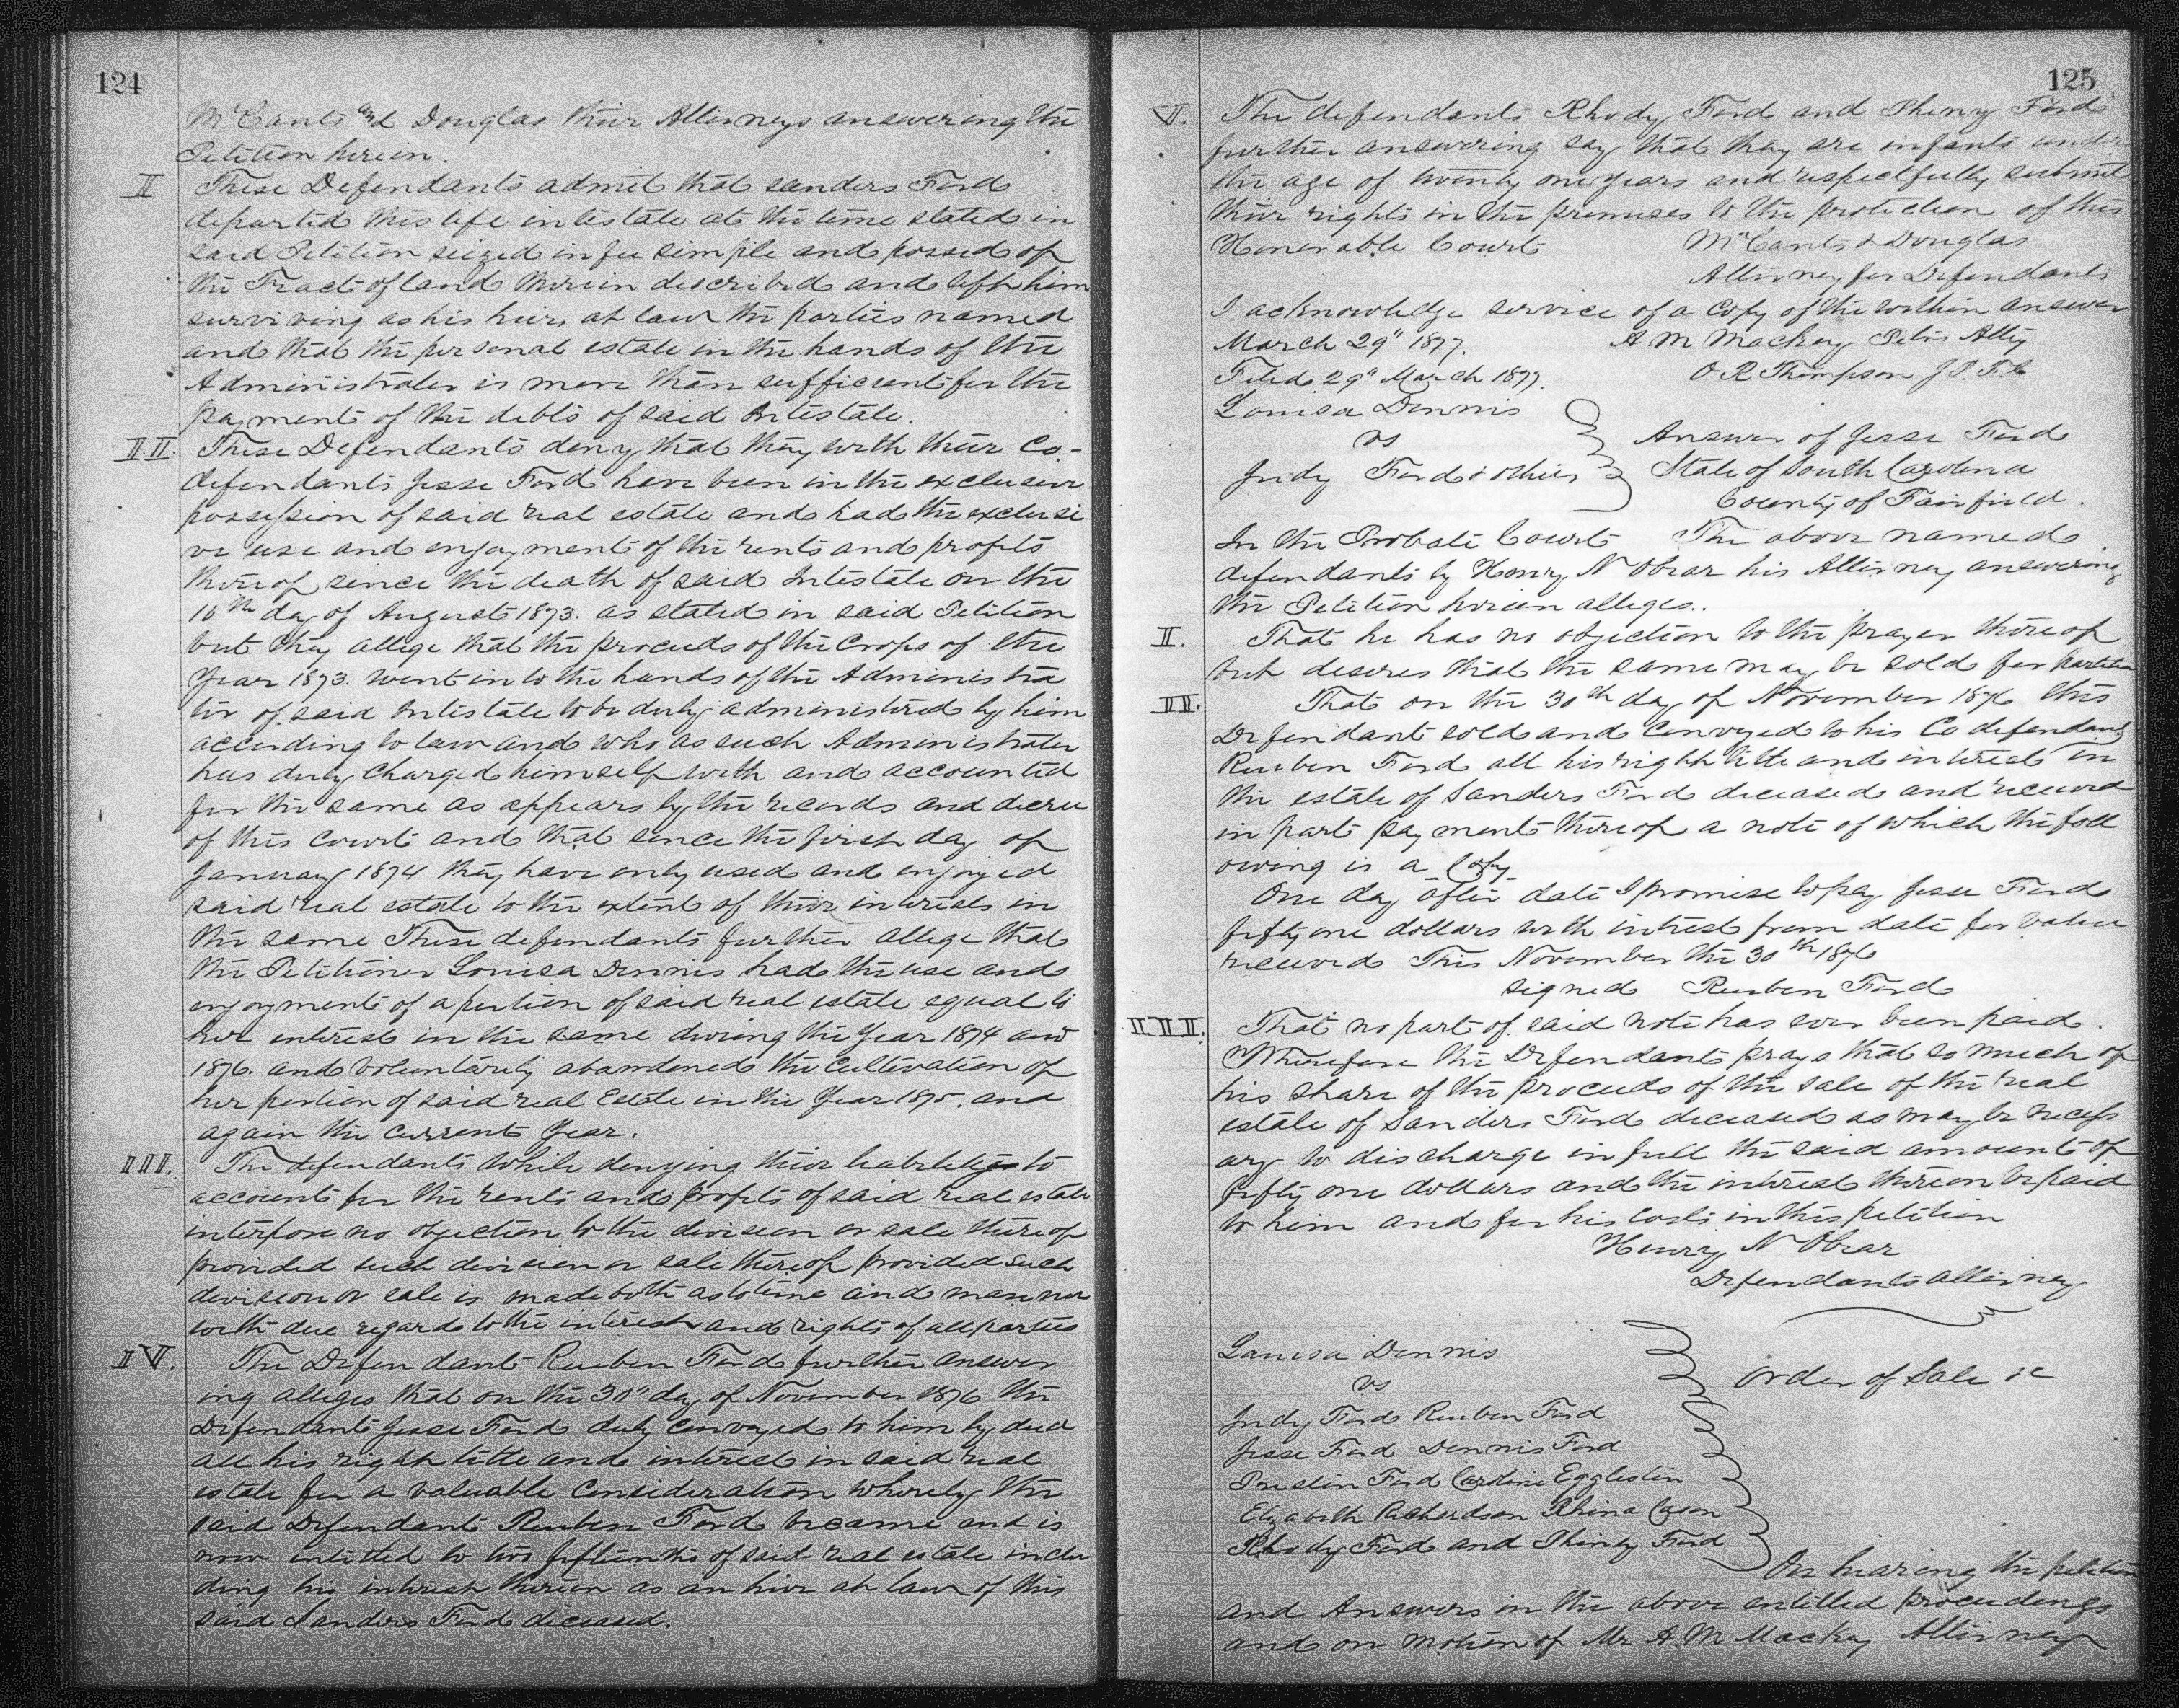 124
McCants and Douglas their Attorneys answering the
Petition herein.
I These Defendants admit that Sanders Ford
departed this life intestate at the time stated in
said Petition seized in fee simple and possed of
the Tract of land therein described and left him
surviving as his heirs at law the parties named
and that the personal estate in the hands of the
Administrator is more than sufficient for the
payment of the debts of said Intestate.
II. These Defendants deny that they with their Co-
defendants Jesse Ford have been in the exclusive
possession of said real estate and had the exclusi
ve use and enjoyment of the rents and profits
thereof since the death of said Intestate on the
10th day of August 1873. as stated in said Petition
but they allege that the proceeds of the Crops of the
Year 1873. went in to the hands of the Administra
tor of said Intestate to be duly administered by him
according to law and who as such Administrator
has duly charged himself with and accounted
for the same as appears by the records and decree
of this Court and that since the first day of
January 1874 they have only used and enjoyed
said real estate to the extent of their interests in
the same These defendants further allege that
the Petitioner Louisa Dennis had the use and
enjoyment of a portion of said real estate equal to
her interest in the same during the Year 1874 and
1876. and voluntarily abandoned the Cultivation of
her portion of said real Estate in the Year 1875. and
again the current Year.
III. The defendants while denying their liabilities to
account for the rents and profits of said real estate
interpose no objection to the division or sale thereof
provided such division or sale thereof provided such
division or sale is made both as to time and manner
with due regard to the interest and rights of all parties
IV. The Defendant Reuben Ford further answer
ing alleges that on the 30" day of November 1876 the
Defendant Jesse Ford duly conveyed to him by deed
all his right title and interest in said real
estate for a valuable Consideration whereby the
said Defendant Reuben Ford became and is
now intitled to two fifteenths of said real estate inclu
ding his interest therein as an hire at law of this
said Sanders Ford deceased.
125
V. The defendants Rhody Ford and Ford
further answering say that they are infants under
the age of twenty one years and respectfully submit
their rights in the premises to the protection of this
Honorable Court McCants & Douglas
Attorney for Defendants
I acknowledge service of a Copy of the within answer
March 29" 1877. A M Mackey Petrs Atty
Filed 29" March 1877. O R Thompson J. P. F. C
Louisa Dennis
vs Answer of Jesse Ford
Judy Ford & others State of South Carolina
County of Fairfield.
In the Probate Court The above named
defendants by Henry N Obear his Attorney answering
the Petition herein alleges.
I. That he has no objection to the prayer thereof
but desires that the same may be sold for partition
II. That on the 30th day of November 1876 this
Defendant sold and Conveyed to his Co defendant
Reuben Ford all his right title and interest in
the estate of Sanders Ford deceased and received
in part payment thereof a note of which the foll
owing is a Copy
One day after date I promise to pay Jesse Ford
fifty one dollars with intrest from date for value
received This November the 30th 1876
signed Reuben Ford
III. That no part of said note has ever been paid.
Wherefore the Defendant prays that so much of
his share of the proceeds of the sale of the real
estate of Sanders Ford deceased as may be necess
ary to discharge in full the said amount of
fifty one dollars and the interest thereon be paid
to him and for his costs in this petition
Henry N Obear
Defendants Attorney
Louisa Dennis
vs Order of Sale &c
Judy Ford Reuben Ford
Jesse Ford Dennis Ford
Preston Ford Caroline Eggleston
Elizabeth Richardson Rhina
Rhody Ford and Ford
On hearing the petition
and Answers in the above entitled proceedings
and on motion of Mr A M Mackey Attorney